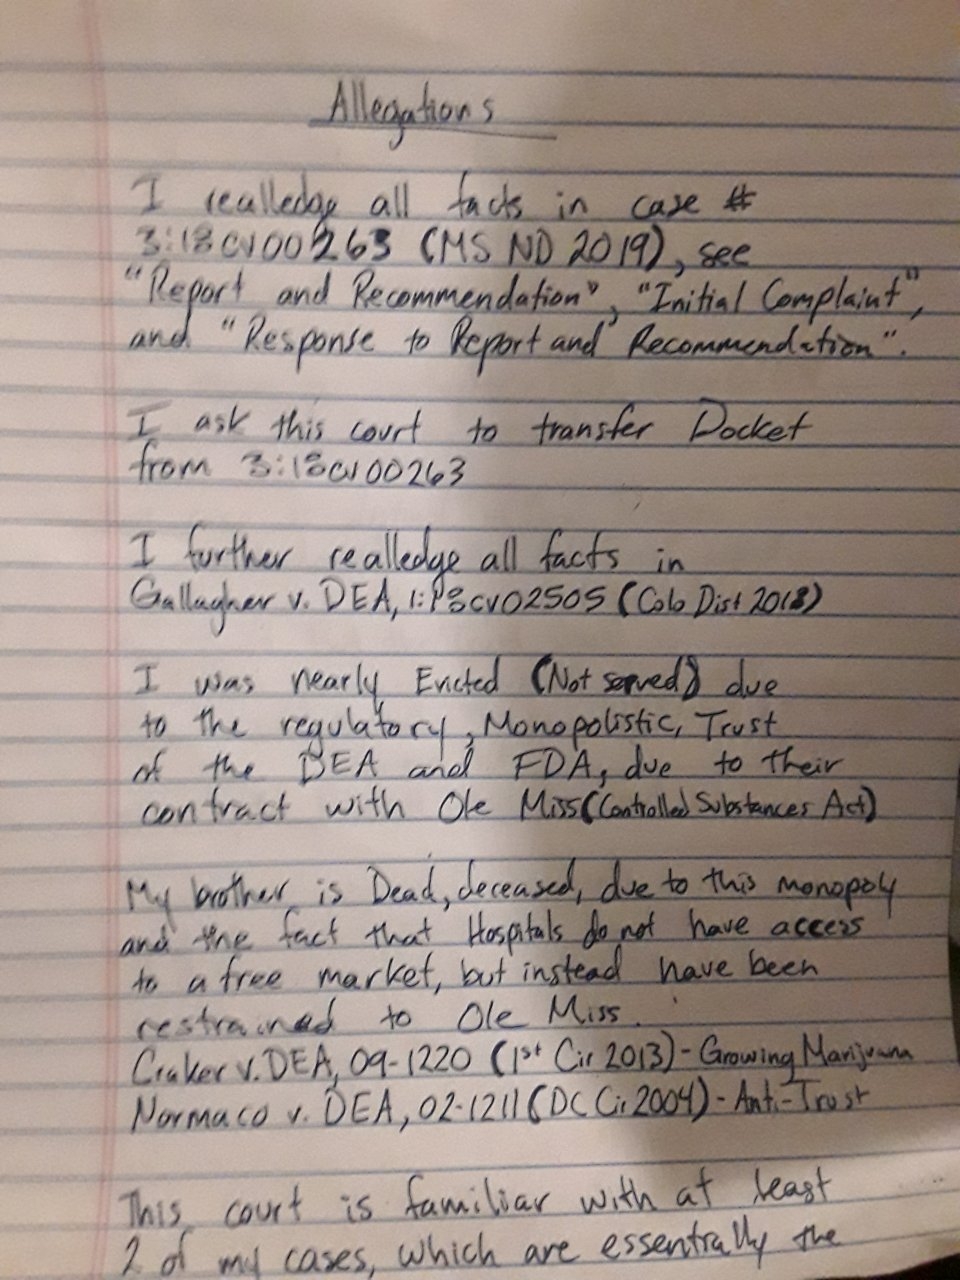 Allegations
I realledge all facts in case #
3:18cv00263 (MS ND 2019), see
"Report and Recommendation", "Initial Complaint",
and "Response to Report and Recommendation".
I ask this court to transfer Docket
from 3:18cv00263
I further realledge all facts in
Gallagher v. DEA, 1:18cv02505 (Colo Dist 2018)
I was nearly Evicted (Not served) due
to the regulatory, Monopolistic, Trust
of the DEA and FDA, due to their
contract with Ole Miss (Controlled Substances Act)
My brother is Dead, deceased, due to this monopoly
and the fact that Hospitals do not have access
to a free market, but instead have been
restrained to Ole Miss.
Craker v. DEA, 09-1220 (1st Cir 2013) - Growing Marijuana
Normaco v. DEA, 02-1211 (DC Cir 2004) - Anti-Trust
This court is familiar with at least
2 of my cases, which are essentially the